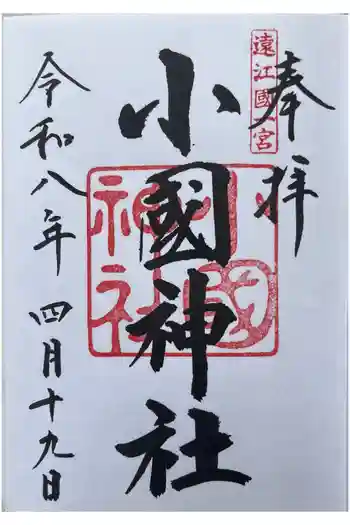 奉拝
遠江國一宮
小國神社
小國神社
令和八年 四月十九日